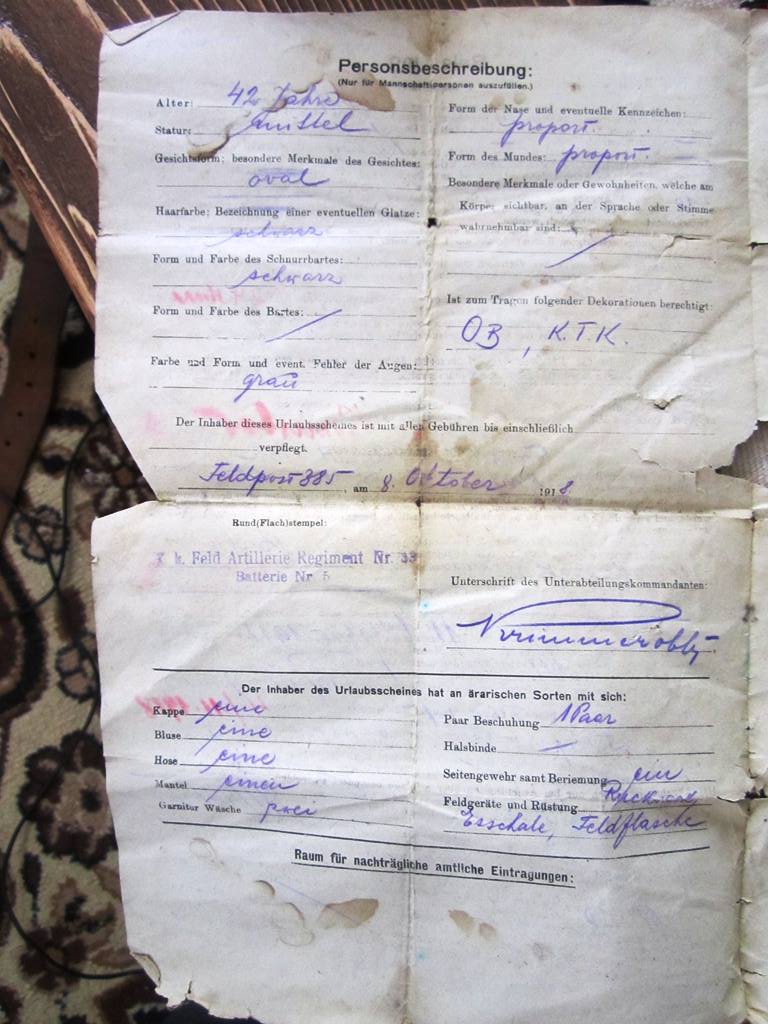 Personsbeschreibung:
(Nur für Mannschaftspersonen auszufüllen.)
Alter: 42 Jahre
Statur: mittel
Gesichtsform; besondere Merkmale des Gesichtes:
oval
Haarfarbe; Bezeichnung einer eventuellen Glatze:
schwarz
Form und Farbe des Schnurrbartes:
schwarz
Form und Farbe des Bartes:
Farbe und Form und event. Fehler der Augen:
grau
Form der Nase und eventuelle Kennzeichen:
proport.
Form des Mundes: proport.
Besondere Merkmale oder Gewohnheiten, welche am
Körper sichtbar, an der Sprache oder Stimme
wahrnehmbar sind:
Ist zum Tragen folgender Dekorationen berechtigt:
OB, K.T.K.
Der Inhaber dieses Urlaubsscheines ist mit allen Gebühren bis einschließlich
verpflegt.
Feldpost 385, am 8. Oktober 1918.
Rund(Flach)stempel:
k. k. Feld Artillerie Regiment Nr. 33
Batterie Nr 5
Unterschrift des Unterabteilungskommandanten:
Der Inhaber des Urlaubsscheines hat an ärarischen Sorten mit sich:
Kappe eine
Bluse eine
Hose eine
Mantel einen
Garnitur Wäsche zwei
Paar Beschuhung 1 Paar
Halsbinde
Seitengewehr samt Beriemung ein
Feldgeräte und Rüstung Rucksack
Esschale, Feldflasche
Raum für nachträgliche amtliche Eintragungen: